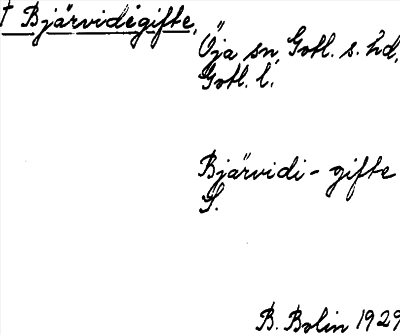 † Bjärvidegifte,
Öja sn, Gotl. s. hd,
Gotl. l.
Bjärvidi-gifte
S.
B. Bolin 1929